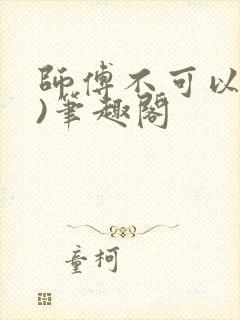 師傅不可以
)筆趣閣
童柯